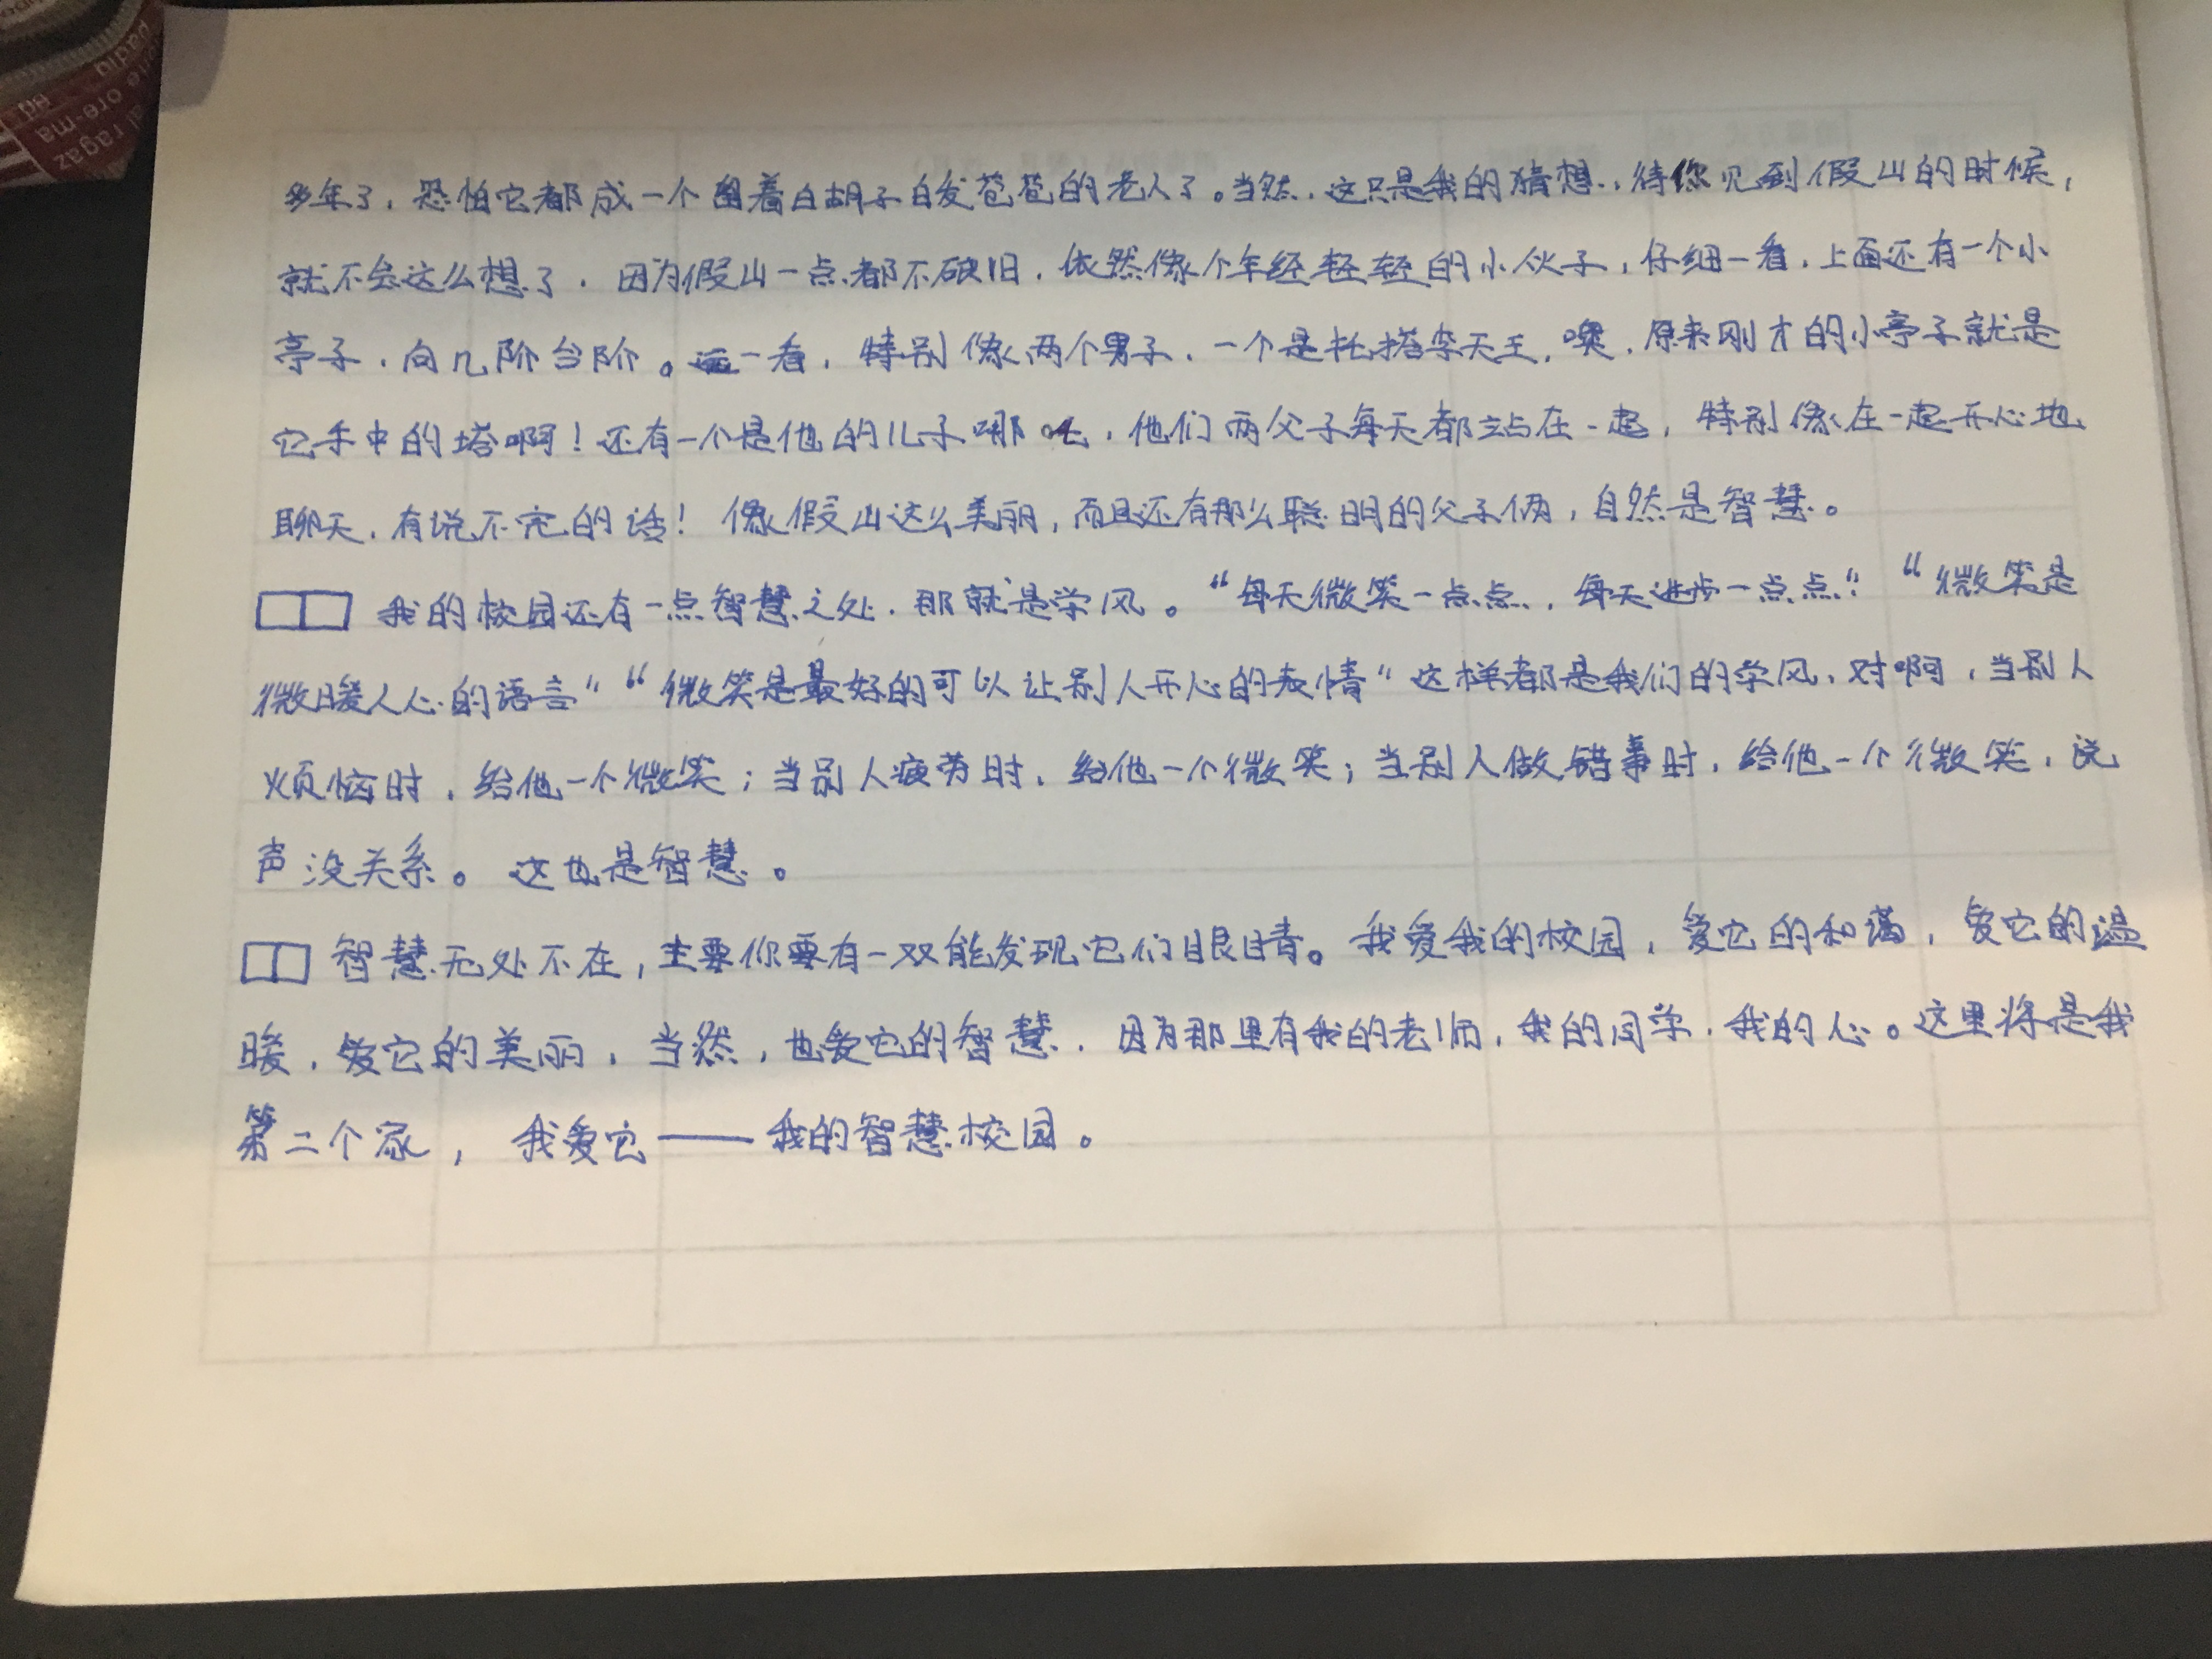 多年了，恐怕它都成一个留着白胡子白发苍苍的老人了。当然，这只是我的猜想，待你见到假山的时候，
就不会这么想了，因为假山一点都不破旧，依然像个年经轻轻的小伙子，仔细一看，上面还有一个小
亭子，向几阶台阶。远一看，特别像两个男子，一个是托搭李天王，噢，原来刚才的小亭子就是
它手中的塔啊！还有一个是他的儿子哪吒，他们两父子每天都站在一起，特别像在一起开心地
聊天，有说不完的话！像假山这么美丽，而且还有那么聪明的父子俩，自然是智慧。
我的校园还有一点智慧之处，那就是学风。“每天微笑一点点，每天进步一点点”“微笑是
微暖人心的语言”“微笑是最好的可以让别人开心的表情”这样都是我们的学风，对啊，当别人
烦恼时，给他一个微笑；当别人疲劳时，给他一个微笑；当别人做错事时，给他一个微笑，说
声没关系。这也是智慧。
智慧无处不在，主要你要有一双能发现它们眼睛。我爱我的校园，爱它的和蔼，爱它的温
暖，爱它的美丽，当然，也爱它的智慧，因为那里有我的老师，我的同学，我的心。这里将是我
第二个家，我爱它——我的智慧校园。
ragaz
ore-ma